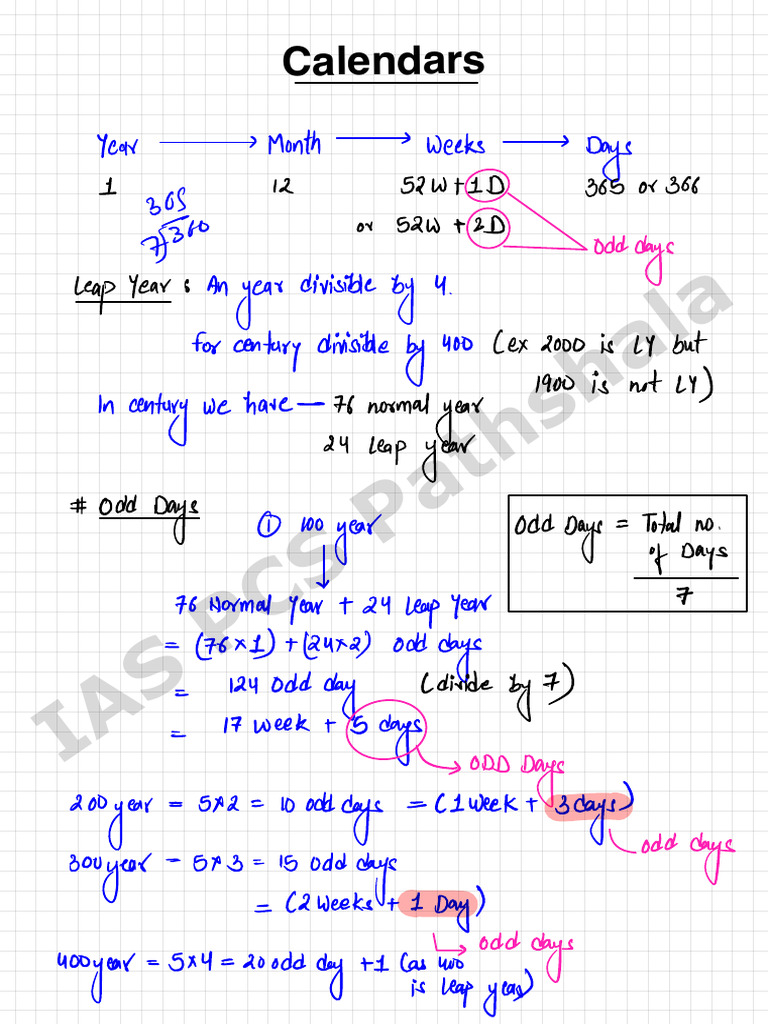 Calendars
Year → Month → Weeks → Days
1 12 52W + 1D 365 or 366
or 52W + 2D
odd days
365
7)360
Leap Year : An year divisible by 4.
for century divisible by 400 (ex 2000 is LY but
1900 is not LY)
In century we have — 76 normal year
24 leap year
# Odd Days
① 100 year
Odd Days = Total no.
of Days
7
↓
76 Normal Year + 24 Leap Year
= (76×1) + (24×2) odd days
= 124 odd day (divide by 7)
= 17 week + 5 days
→ ODD Days
200 year = 5×2 = 10 odd days = (1 week + 3 days)
odd days
300 year – 5×3 = 15 odd days
= (2 weeks + 1 Day)
→ odd days
400 year = 5×4 = 20 odd day +1 (as 400
is leap year)
IAS PCS Pathshala